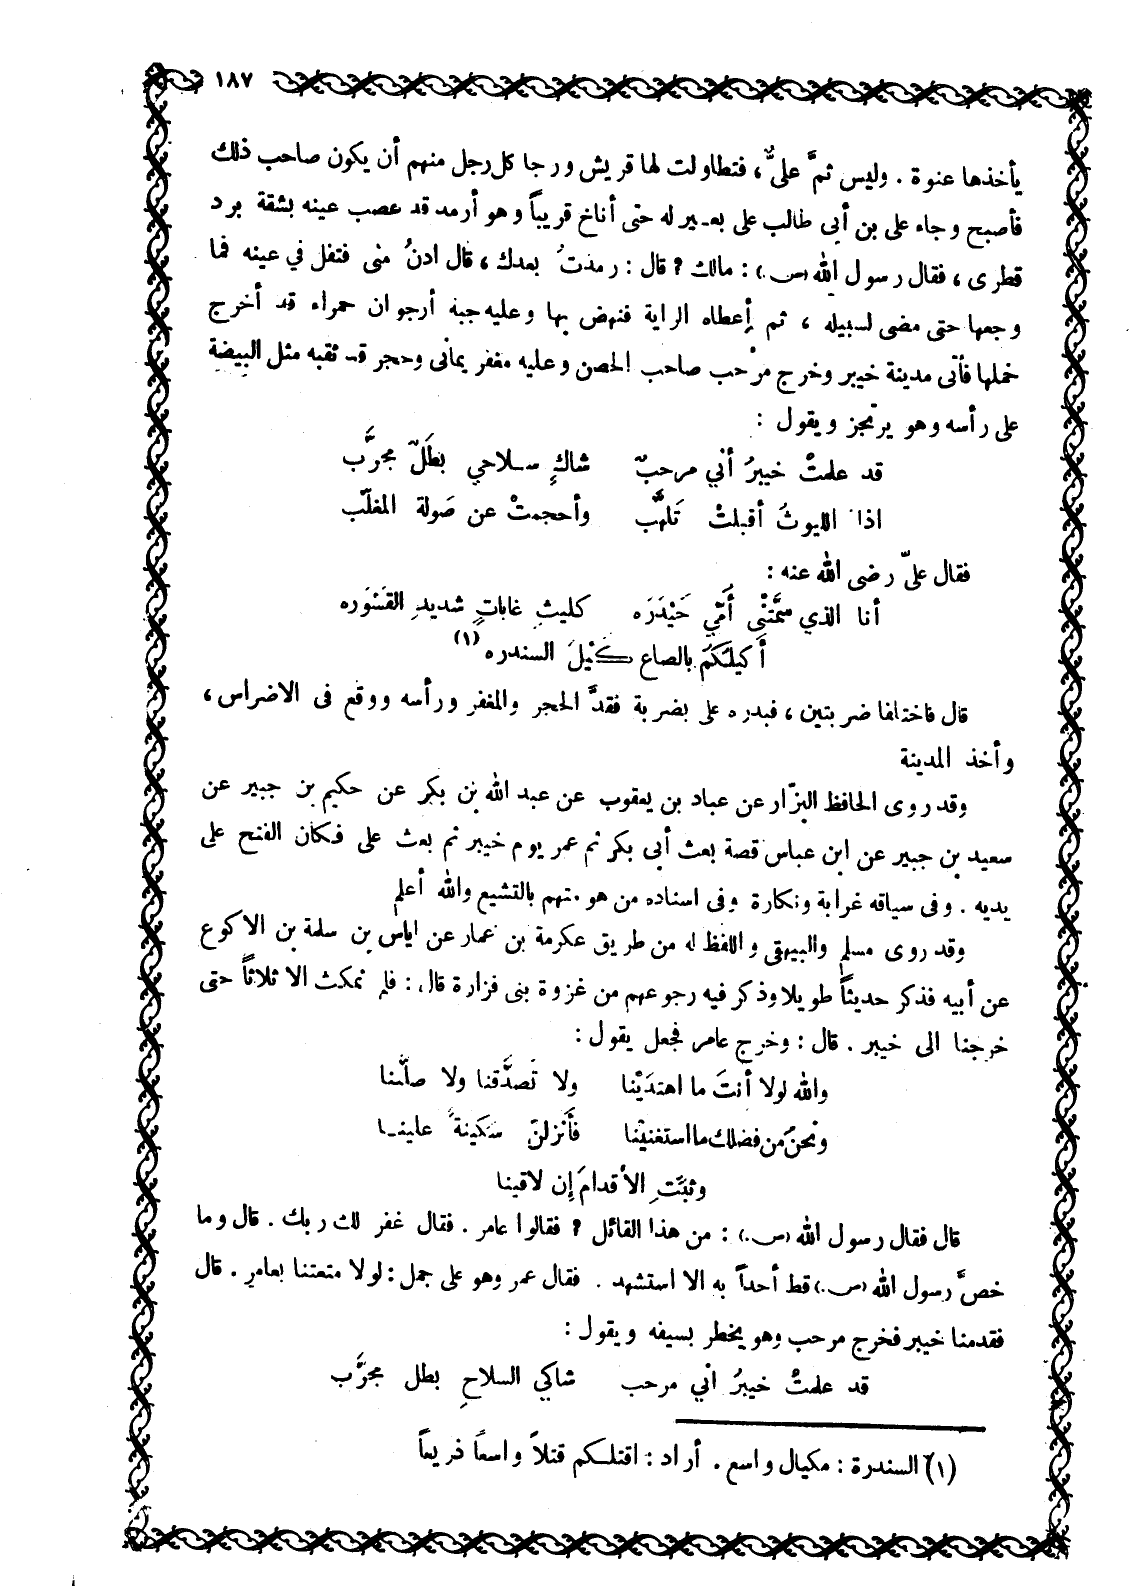 ١٨٧
يأخذها عنوة . وليس ثمَّ عليٌّ ، فتطاولت لها قريش ورجا كل رجل منهم أن يكون صاحب ذلك
فأصبح وجاء على بن أبي طالب على بعير له حتى أناخ قريباً وهو أرمد قد عصب عينه بشقة برد
قطرى ، فقال رسول الله (س.) : مالك ؟ قال : رمدتُ بعدك ، قال ادنُ منى فتفل في عينه فما
وجعها حتى مضى لسبيله ، ثم إعطاه الراية فنهض بها وعليه جبة أرجوان حمراء قد أخرج
خملها فأتى مدينة خيبر وخرج مرْحب صاحب الحصن وعليه مغفر يمانى وحجر قد ثقبه مثل البيضة
على رأسه وهو يرتجز ويقول :
قد علمتْ خيبرُ أني مرحبٌ شاكٍ سلاحي بطَلٌ مجرَّب
اذا الليوثُ أقبلتْ تَلهَّب وأحجمتْ عن صَولة المغلّب
فقال عليّ رضى الله عنه :
أنا الذي سمَّتنْى أُمّي حَيْدَرَه كليثِ غاباتٍ شديدِ القسْوَره
أَكيلُكُم بالصاع كَيْلَ السندره (١)
قال فاختلفا ضربتين ، فبدره على بضربة فقدَّ الحجر والمغفر ورأسه ووقع فى الاضراس ،
وأخذ المدينة
وقد روى الحافظ البزّار عن عباد بن يعقوب عن عبد الله بن بكر عن حكيم بن جبير عن
سعيد بن جبير عن ابن عباس قصة بعث أبى بكر ثم عمر يوم خيبر ثم بعث على فكان الفتح على
يديه . وفى سياقه غرابة ونكارة وفى اسناده من هو متهم بالتشيع والله أعلم
وقد روى مسلم والبيهقى واللفظ له من طريق عكرمة بن عمار عن اياس بن سلمة بن الاكوع
عن أبيه فذكر حديثاً طويلا وذكر فيه رجوعهم من غزوة بنى فزارة قال : فلم نمكث الا ثلاثاً حتى
خرجنا الى خيبر . قال : وخرج عامر فجعل يقول :
والله لولا أنتَ ما اهتدَيْنا ولا تَصدَّقنا ولا صلَّينا
ونحنُ من فضلك ما استغنيْنا فأَنزلنْ سكينةً علينا
وثبَّتِ الأقدامَ إن لاقينا
قال فقال رسول الله (س.) : من هذا القائل ؟ فقالوا عامر . فقال غفر لك ربك . قال وما
خصَّ رسول الله (س.) قط أحداً به الا استشهد . فقال عمر وهو على جمل : لولا متعتنا بعامر . قال
فقدمنا خيبر فخرج مرحب وهو يخطر بسيفه ويقول :
قد علمتْ خيبرُ انّي مرحب شاكي السلاحِ بطل مجرَّب
(١) السندرة : مكيال واسع . أراد : اقتلكم قتلاً واسعاً ذريعاً